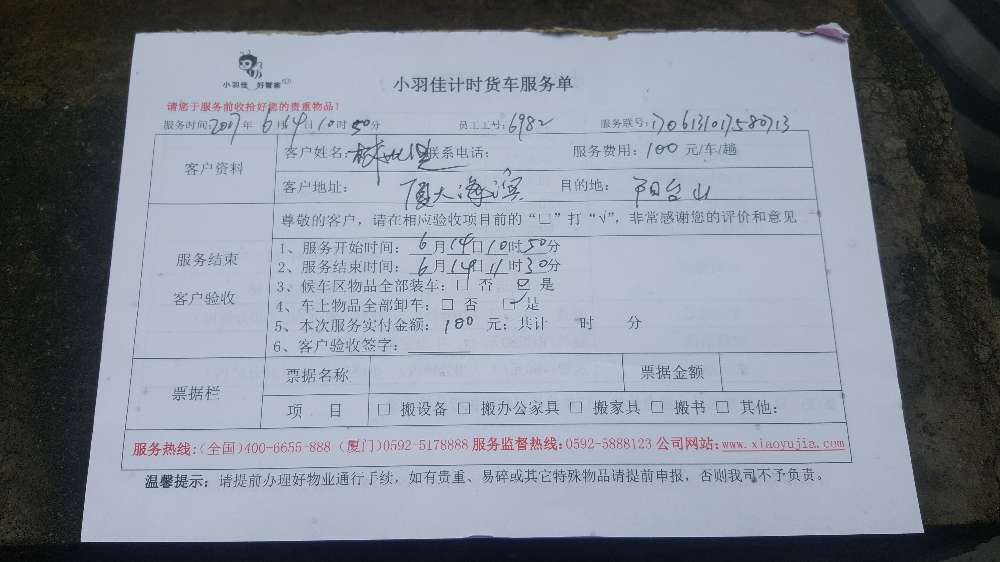 小羽佳 好管家
小羽佳计时货车服务单
请您于服务前收拾好您的贵重物品!
服务时间:2017年6月14日10时50分 员工工号:6982 服务联号:1706131017580713
客户资料
客户姓名: 联系电话: 服务费用:100元/车/趟
客户地址:厦大海滨 目的地:阳台山
服务结束
客户验收
尊敬的客户,请在相应验收项目前的“□”打“√”,非常感谢您的评价和意见
1、服务开始时间:6月14日10时50分
2、服务结束时间:6月14日11时30分
3、候车区物品全部装车:□ 否 ☑ 是
4、车上物品全部卸车:□ 否 ☑ 是
5、本次服务实付金额:100元;共计 时 分
6、客户验收签字:
票据栏
票据名称 票据金额
项 目 □ 搬设备 □ 搬办公家具 □ 搬家具 □ 搬书 □ 其他:
服务热线:(全国)400-6655-888 (厦门)0592-5178888 服务监督热线:0592-5888123 公司网站:www.xiaoyujia.com
温馨提示:请提前办理好物业通行手续,如有贵重、易碎或其它特殊物品请提前申报,否则我司不予负责。